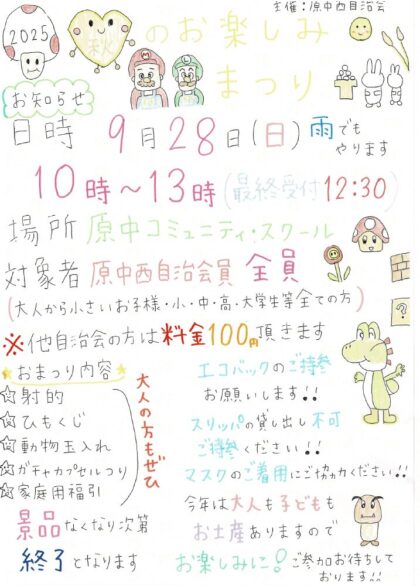 主催：原中西自治会
2025
秋のお楽しみ
まつり
お知らせ
日時 9月28日(日) 雨でも
やります
10時～13時(最終受付12:30)
場所 原中コミュニティ・スクール
対象者 原中西自治会員 全員
(大人から小さいお子様・小・中・高・大学生等全ての方)
※他自治会の方は料金100円頂きます
☆おまつり内容☆
☆射的
☆ひもくじ
☆動物玉入れ
☆ガチャカプセルつり
☆家庭用福引
大人の方もぜひ
景品なくなり次第
終了となります
エコバックのご持参
お願いします!!
スリッパの貸し出し不可
ご持参ください!!
マスクのご着用にご協力ください!!
今年は大人も子どもも
お土産ありますので
お楽しみに! ご参加お待ちして
おります!!
?